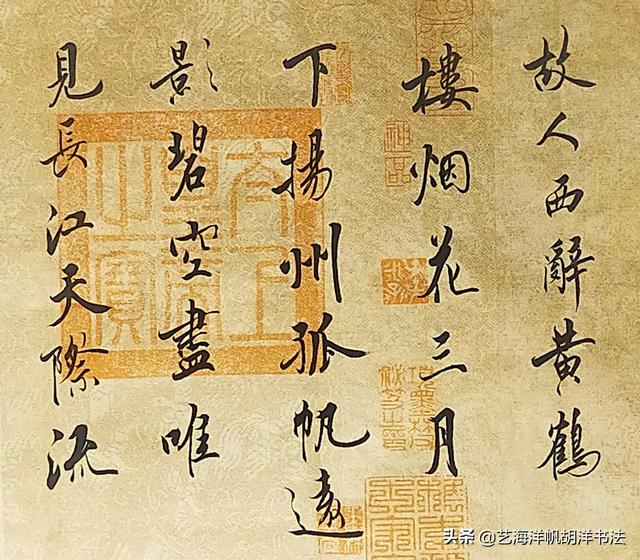 故人西辭黄鶴
樓烟花三月
下揚州孤帆遠
影碧空盡唯
見長江天際流
头条 @艺海洋帆胡洋书法